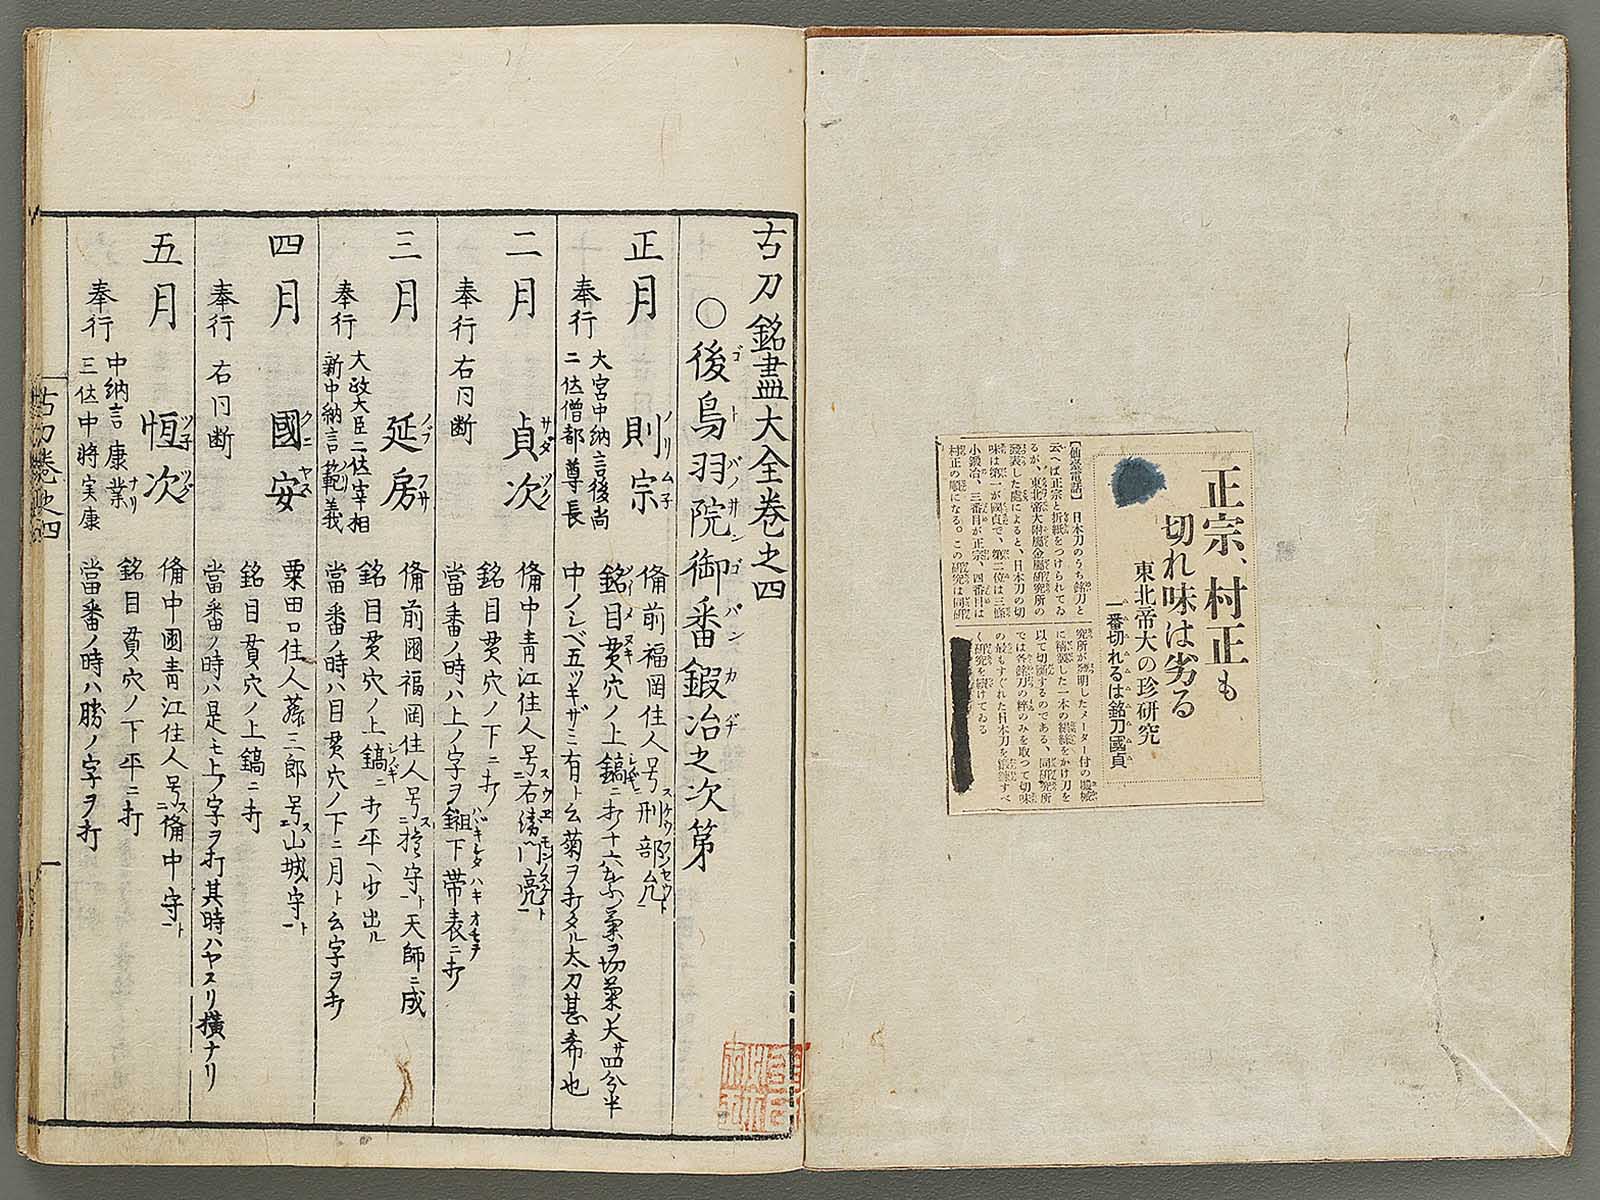 正宗、村正も
切れ味は劣る
東北帝大の珍研究
一番切れるは銘刀國貞
【仙臺電話】日本刀のうち銘刀と
云へば正宗と折紙をつけられてゐ
るが、東北帝大附屬金屬研究所の
發表した處によると、日本刀の切
味は第一が國貞で、第二位は三條
小鍛冶、三番目が正宗、四番目は
村正の順になる。この研究は同研
究所が發明したメーター付の機械
に精製した一本の組絲をかけ刀を
以て切斷するのである、同研究所
では各銘刀の粹のみを取つて切味
の最もすぐれた日本刀を鍛錬すべ
く研究を續けてゐる
古刀銘盡大全巻之四
〇後鳥羽院御番鍛冶之次第
ゴトバノサンゴバンカヂ
正月 則宗
ノリムネ
奉行 大宮中納言後尚
二位僧都尊長
備前福岡住人号刑部允
銘目貫穴ノ上鎬ニ打十六葉ノ菊ヲ切菊ノ大サ四分半
中ノシベ五ツキザミ有ト云菊ヲ打タル太刀甚希也
二月 貞次
サダツグ
奉行 右同断
備中青江住人号右衛門亮
銘目貫穴ノ下ニ打
當番ノ時ハ上ノ字ヲ鎺下帯表ニ打
三月 延房
ノブフサ
奉行 大政大臣二位宰相
新中納言範義
備前國福岡住人号権守天師ニ成
銘目貫穴ノ上鎬ニ打平ヘ少出ル
當番ノ時ハ目貫穴ノ下ニ月ト云字ヲ打
四月 國安
クニヤス
奉行 右同断
粟田口住人藤三郎号山城守
銘目貫穴ノ上鎬ニ打
當番ノ時ハ是モ上ノ字ヲ打其時ハヤスリ横ナリ
五月 恒次
ツ子ツグ
奉行 中納言康業
三位中將実康
備中國青江住人号備中守
銘目貫穴ノ下平ニ打
當番ノ時ハ勝ノ字ヲ打
古刀巻之四
一